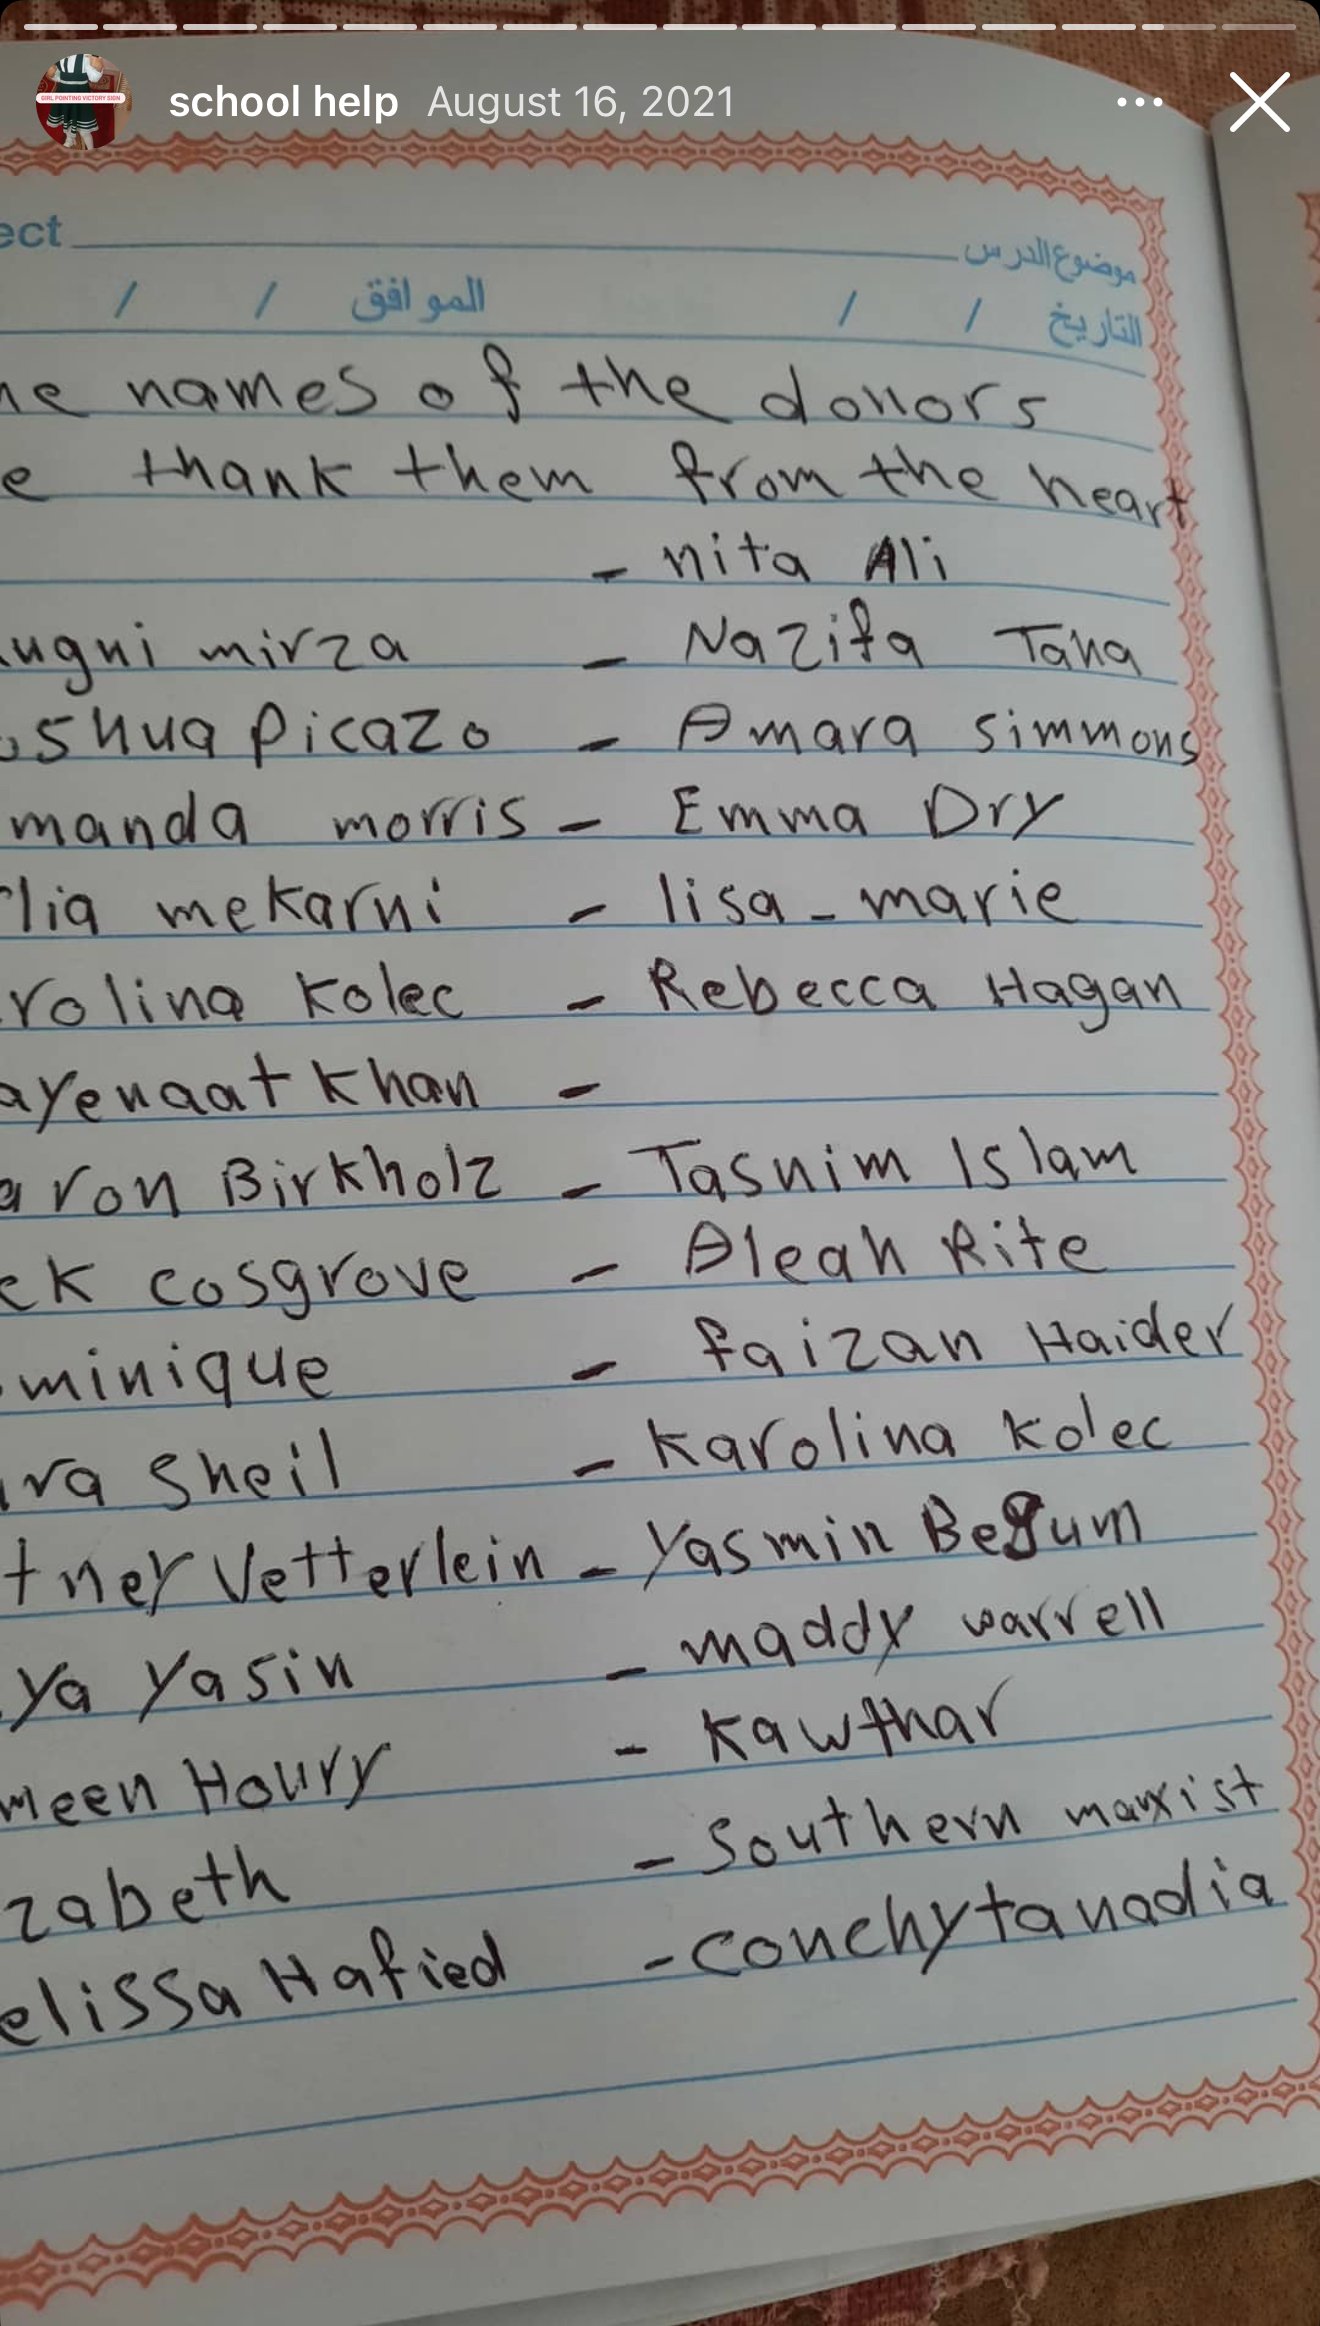 school help August 16, 2021
GIRL POINTING VICTORY SIGN
ect موضوع الدرس
التاريخ / / الموافق / /
he names of the donors
e thank them from the heart
- nita Ali
ugni mirza - Nazifa Taha
oshua Picazo - Amara simmons
manda morris - Emma Dry
lia mekarni - lisa - marie
rolina Kolec - Rebecca Hagan
ayenaat Khan -
aron Birkholz - Tasnim Islam
ek cosgrove - Aleah Rite
minique - faizan Haider
ara Sheil - Karolina Kolec
tney Vetterlein - Yasmin Begum
ya Yasin - maddy warrell
meen Houry - Kawthar
zabeth - Southern marxist
elissa Hafied - conchytanadia